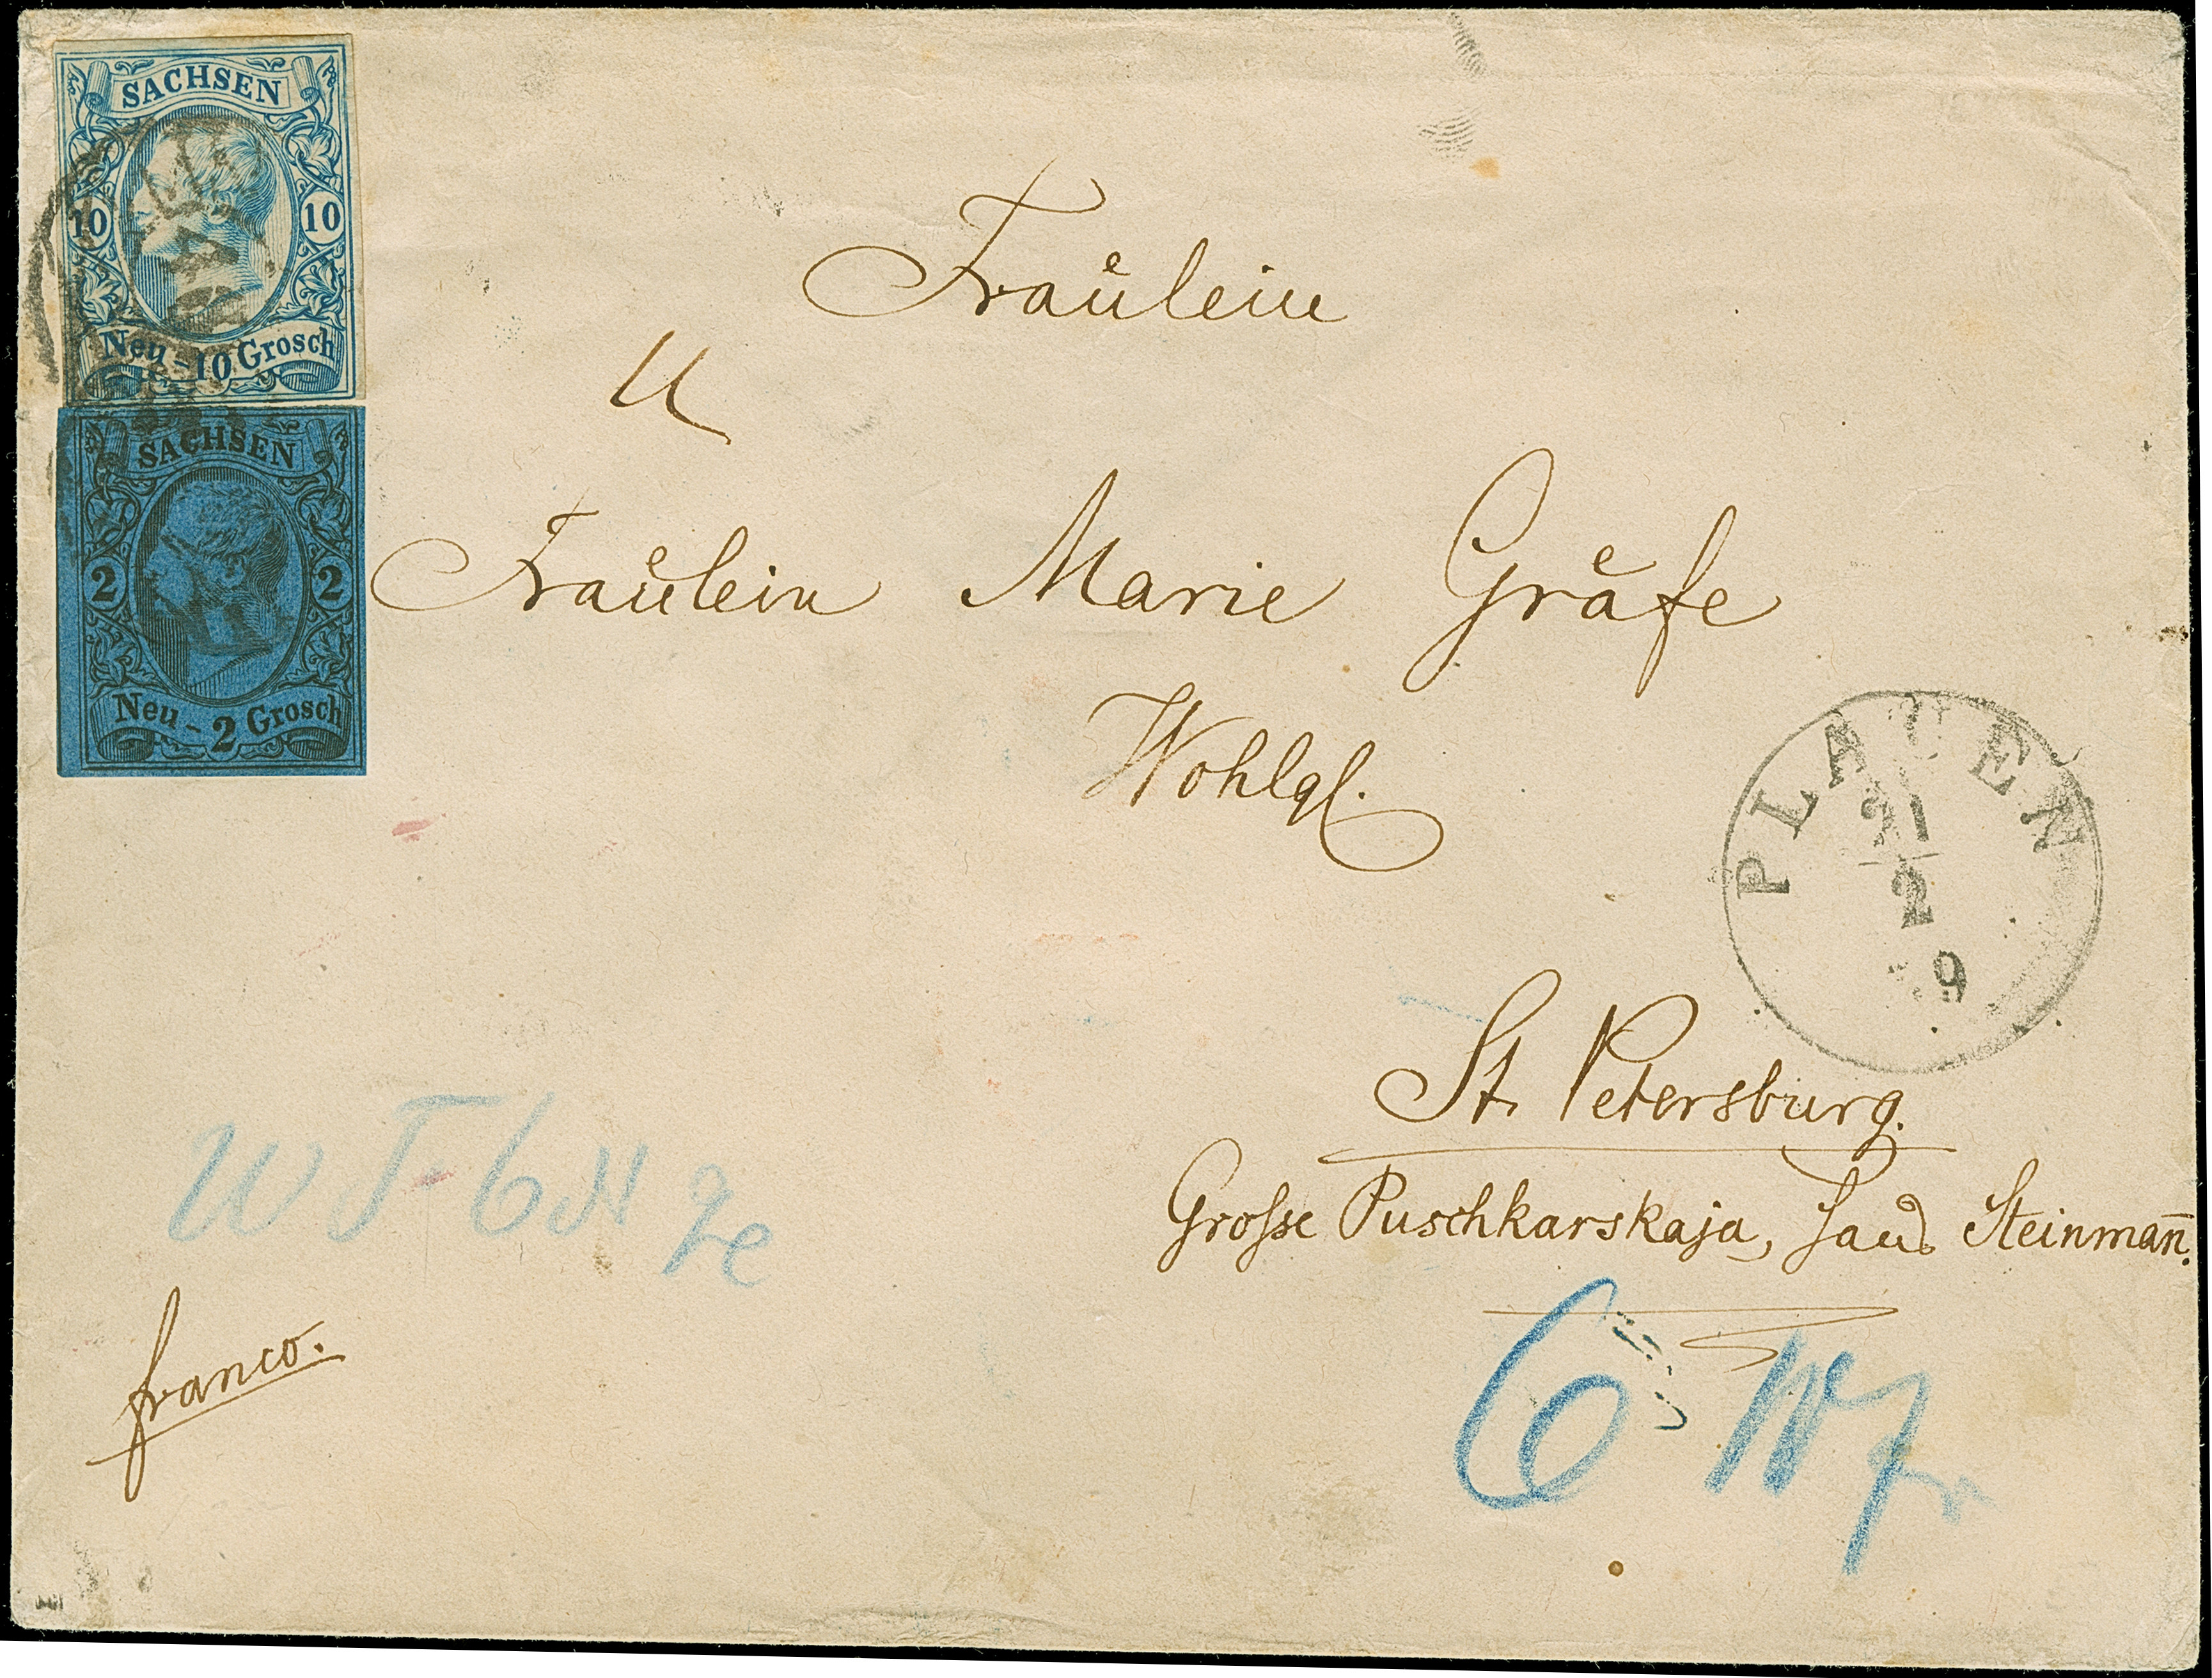 SACHSEN
10 10
Neu - 10 Grosch
SACHSEN
2 2
Neu - 2 Grosch
Fräulein
Fräulein Marie Gräfe
Wohlgl.
PLAUEN
21
2
9
St. Petersburg.
Grosse Puschkarskaja, Haus Steinman̄.
franco.
6